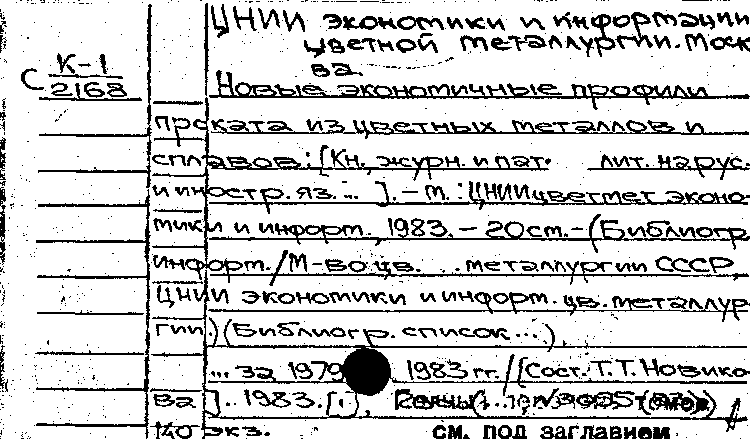 ЦНИИ экономики и информации
цветной металлургии. Моск
ва.
С К-1
2168
Новые экономичные профили
проката из цветных металлов и
сплавов: [Кн., журн. и пат. лит. на рус.
и иностр. яз. ... ]. – М. : ЦНИИцветмет эконо-
мики и информ., 1983. – 20см. – (Библиогр
информ. / М-во цв. ... металлургии СССР,
ЦНИИ экономики и информ. цв. металлур
гии.) (Библиогр. список ... ).
... за 1979 1983 гг. / [Сост. Т.Т. Новико-
ва ]. . 1983. [1],
140 экз. см. под заглавием